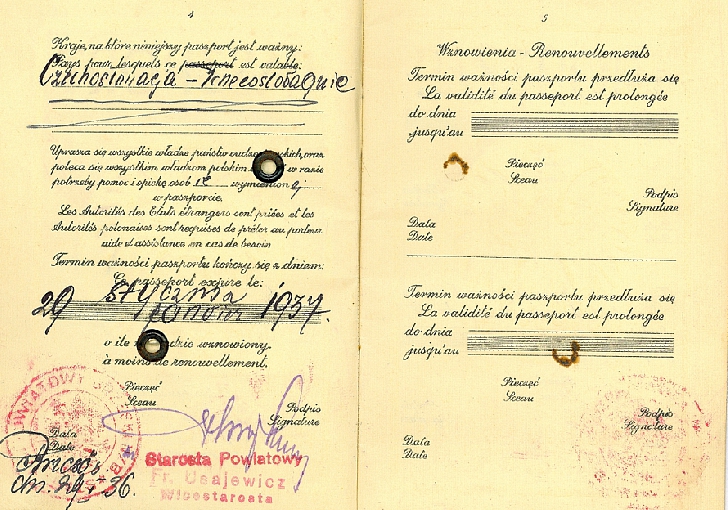 4
Kraje, na które niniejszy paszport jest ważny:
Pays pour lesquels ce passeport est valable:
Czechosłowacja - Tchécoslovaquie
Uprasza się wszystkie władze państw
poleca się wszystkim władzom polskim w razie
potrzeby pomoc i opiekę osób ie wymienionej
w paszporcie.
Les Autorités des Etats étrangers sont priées et les
Autorités polonaises sont requises de prêter au porteur
aide et assistance en cas de besoin
Termin ważności paszportu kończy się z dniem:
Ce passeport expire le:
29 stycznia 1937.
o ile wznowiony.
à moins de renouvellement.
Pieczęć
Sceau
Podpis
Signature
Data
Date
Starosta Powiatowy
Wicestarosta
5
Wznowienia - Renouvellements
Termin ważności paszportu przedłuża się
La validité du passeport est prolongée
do dnia
jusqu'au
Pieczęć
Sceau
Podpis
Signature
Data
Date
Termin ważności paszportu przedłuża się
La validité du passeport est prolongée
do dnia
jusqu'au
Pieczęć
Sceau
Podpis
Signature
Data
Date